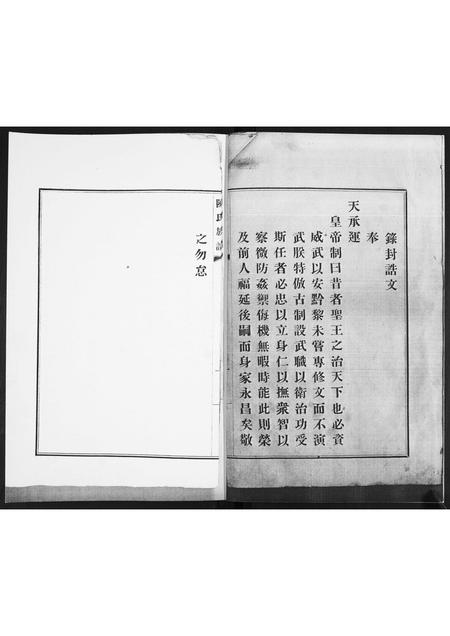 錄封誥文
奉
天承運
皇帝制曰昔者聖王之治天下也必資
威武以安黔黎未嘗專修文而不演
武朕特倣古制設武職以衛治功受
斯任者必忠以立身仁以撫衆智以
察微防姦禦侮機無暇時能此則榮
及前人福延後嗣而身家永昌矣敬
之勿怠